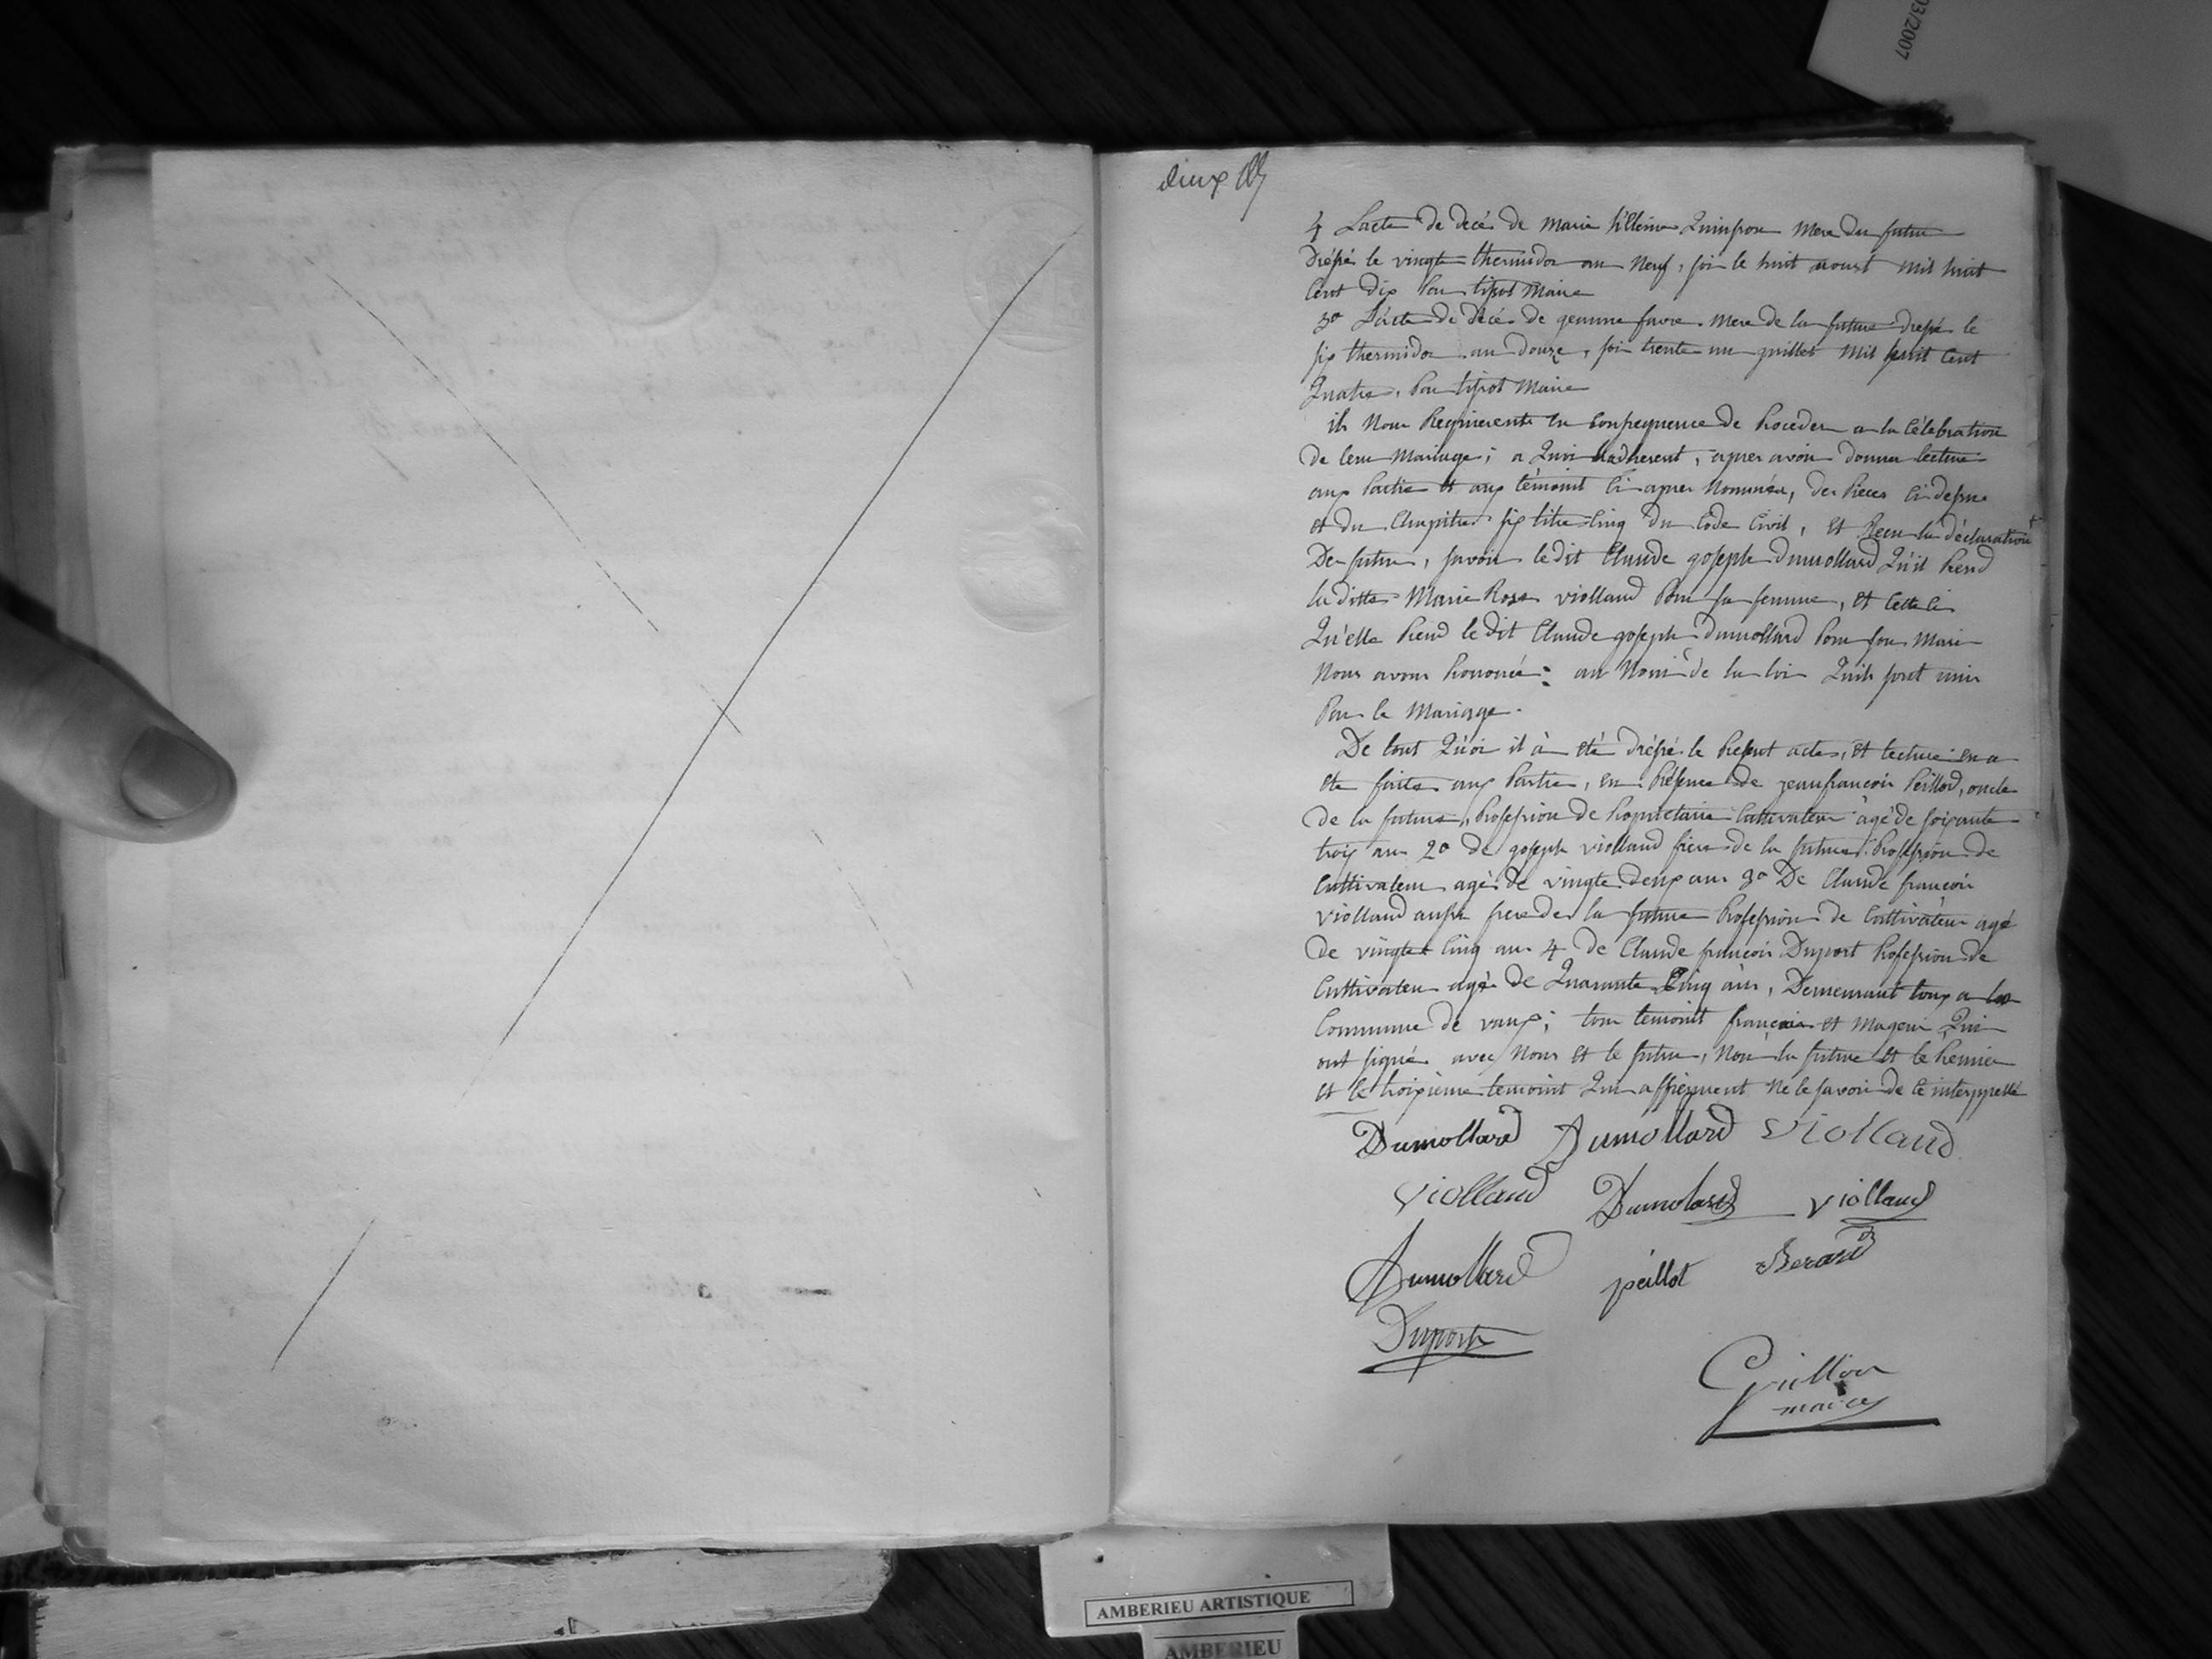 03/2007
deux
4 Lacte de decé de marie Mere du futur
dréssé le vingt thermidor an Neuf, soi le huit aoust mil huit
Cent dix Par tissot Maire
3º L'acte de décé de jeanne favre Mere de la future dressé le
six thermidor an douze, soi trente un juillet mil huit Cent
Quatre, Par tissot Maire
ils Nous Requierent en Consequence de Proceder a la Célebration
de leur Mariage; a Quoi adherent, apres avoir donner lecture
aux Partie et aux témoint Ci apres Nommés, des Pieces Ci dessus
et du Chapitre six titre Cinq du Code Civil, et Recu la déclaration
Des futur, savoir le dit Claude joseph dumollard Qu'il Prend
la ditte Marie Rose violland Pour sa femme, et Cette Ci
Qu'elle Prend le dit Claude joseph dumollard Pour son Mari
Nous avons Prononcé: au Nom de la loi Quils sont unis
Par le Mariage.
De tout Quoi il à eté dréssé le Present acte, et lecture en a
ete faitte aux Partie, en Présence de jeanfrancois Peillod, oncle
de la future, Profession de Propriétaire Cultivateur agé de soixante
trois ans 2º de joseph violland frere de la future Profession de
Cultivateur agé de vingte deux ans 3º De Claude francois
violland aussi frere de la future Profession de Cultivateur agé
de vingte Cinq ans 4 de Claude francois Duport Profession de
Cultivateur agé de Quarante Cinq ans, Demeurant tous a la
Commune de vaux; tous temoint francais et Majeur Qui
ont signé avec Nous et le futur, Non la future et le Premier
et le troisieme temoint Qui affirment Ne le savoir de ce interppellé
Dumollard Dumollard violland
violland Dumolard violland
Dumollard peillot Berard
Duport
Guillon
maire
AMBERIEU ARTISTIQUE
AMBERIEU